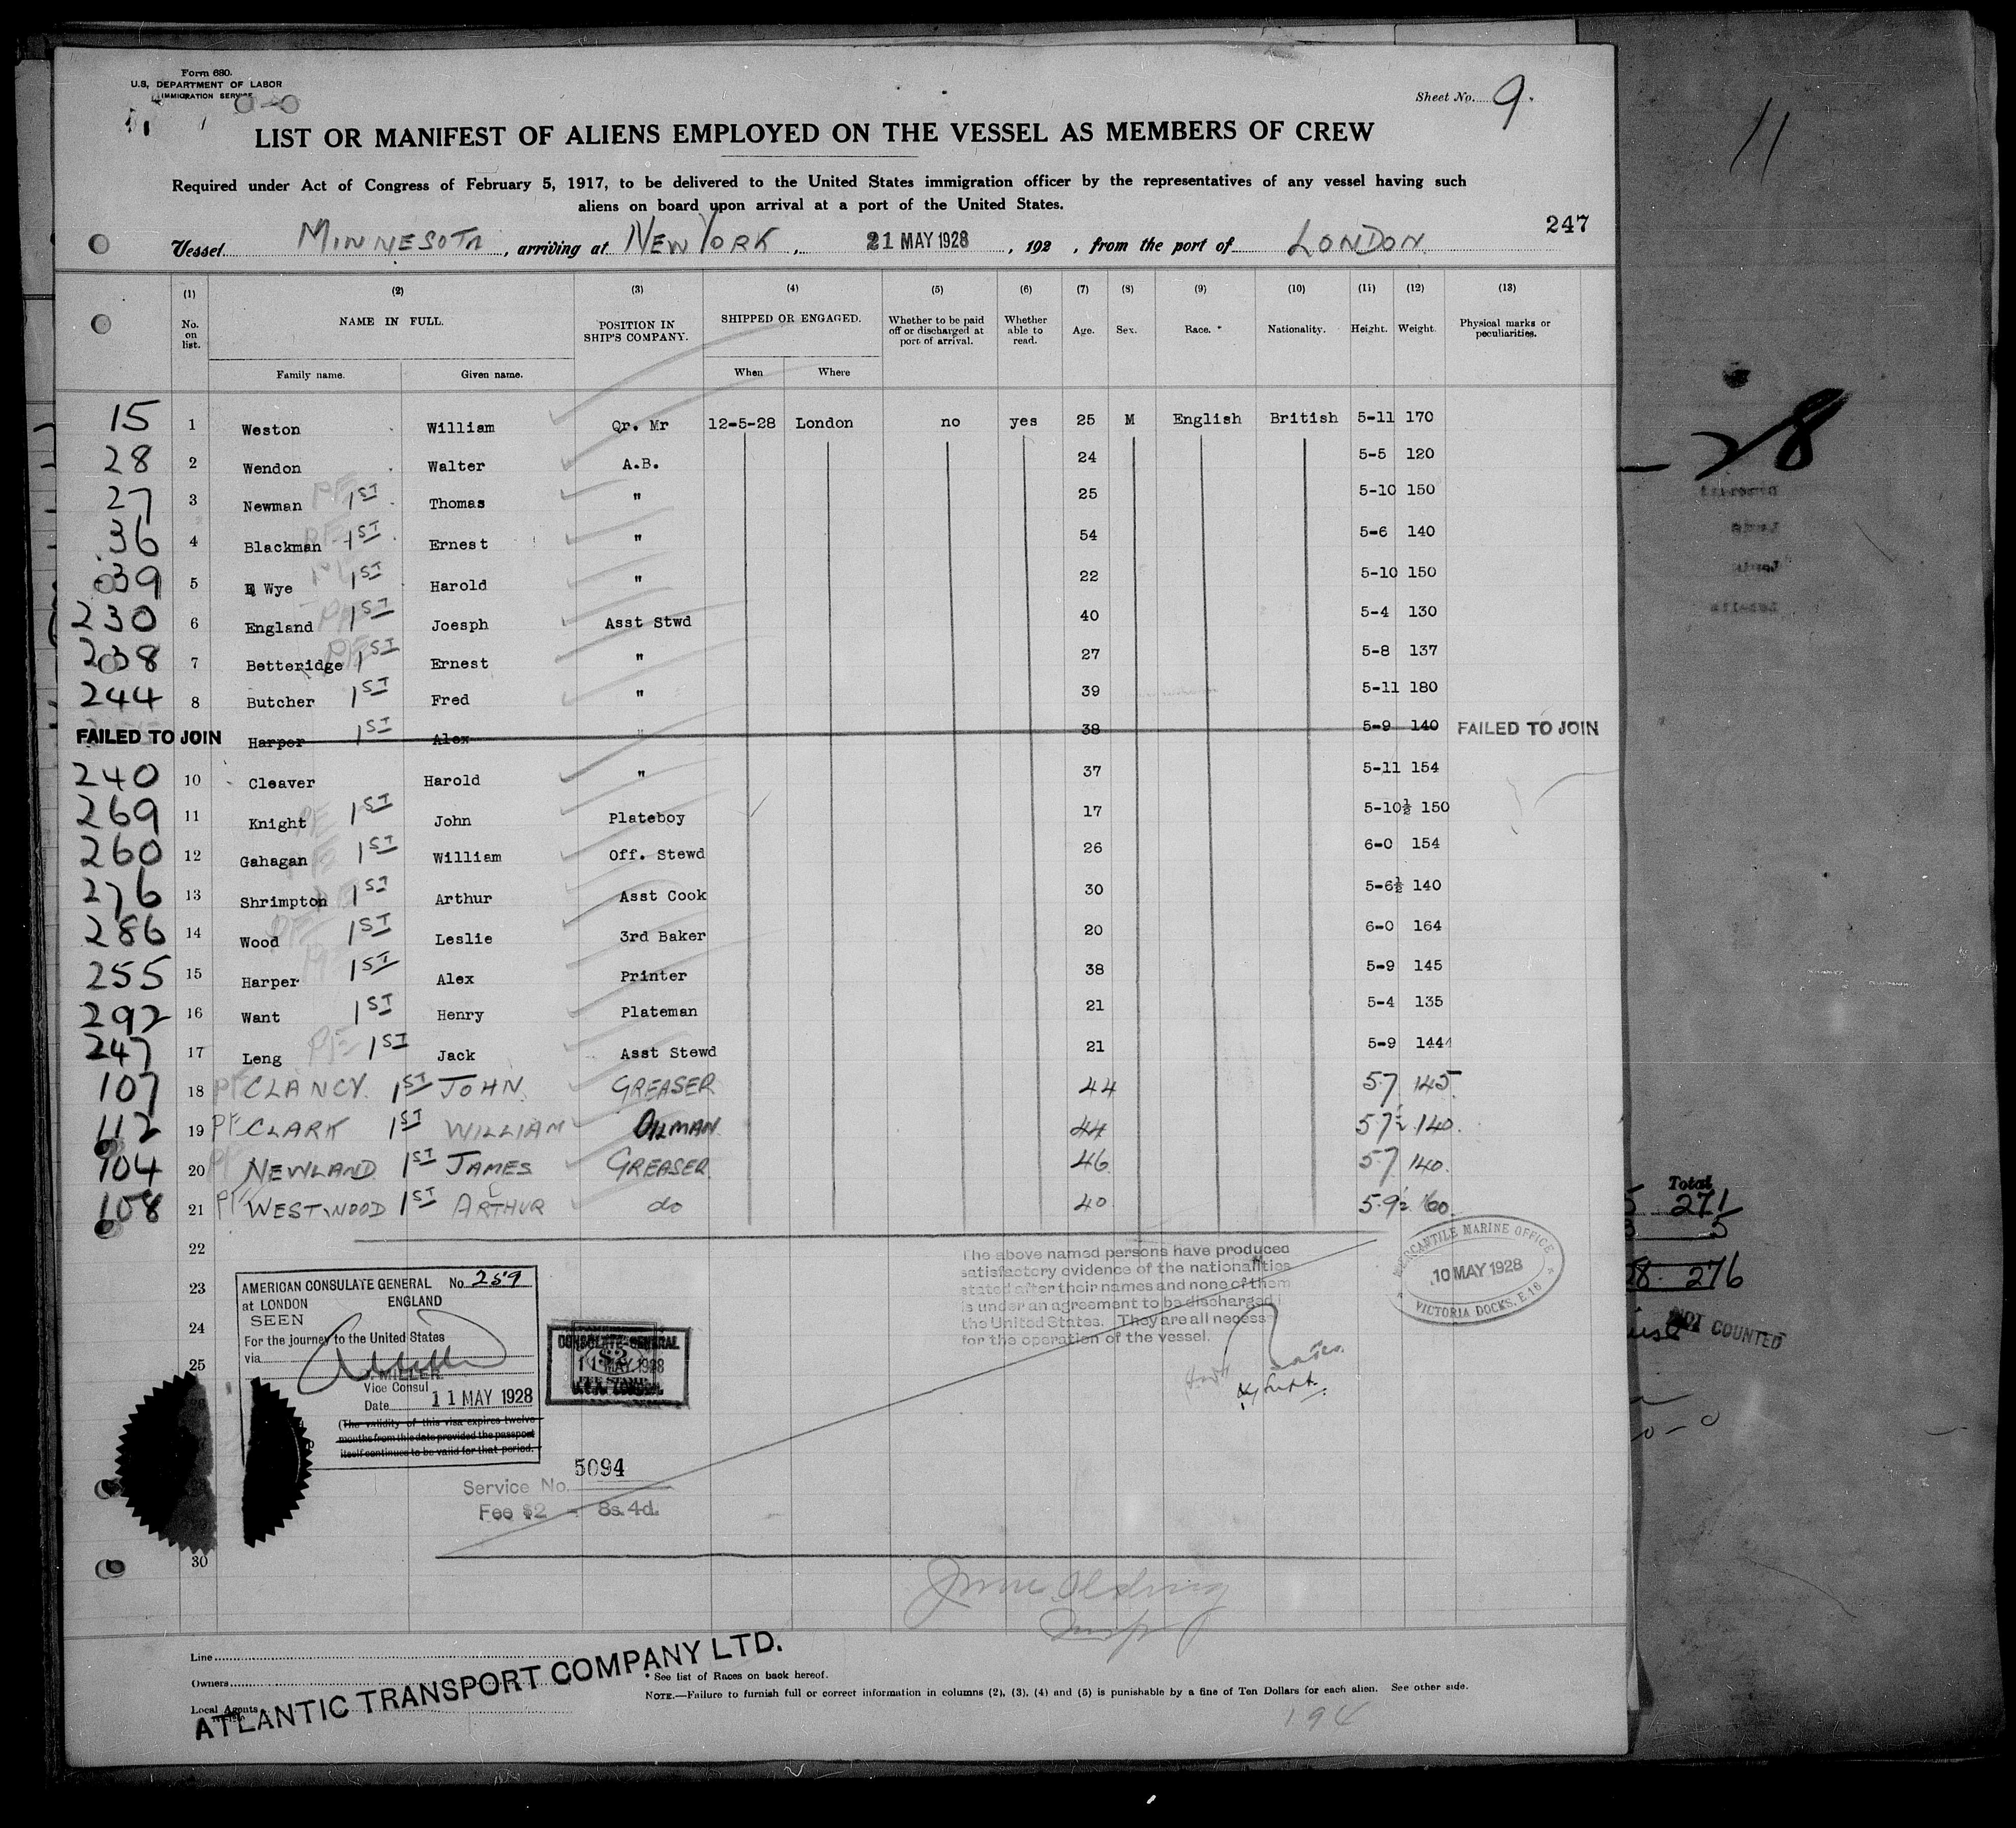 Form 680.
U.S. DEPARTMENT OF LABOR
IMMIGRATION SERVICE
Sheet No. 9.
LIST OR MANIFEST OF ALIENS EMPLOYED ON THE VESSEL AS MEMBERS OF CREW
Required under Act of Congress of February 5, 1917, to be delivered to the United States immigration officer by the representatives of any vessel having such
aliens on board upon arrival at a port of the United States.
247
Vessel MINNESOTA, arriving at NEW YORK, 21 MAY 1928, 192 , from the port of LONDON
(1) (2) (3) (4) (5) (6) (7) (8) (9) (10) (11) (12) (13)
No. on list. NAME IN FULL. POSITION IN SHIP'S COMPANY. SHIPPED OR ENGAGED. Whether to be paid off or discharged at port of arrival. Whether able to read. Age. Sex. Race. * Nationality. Height. Weight. Physical marks or peculiarities.
Family name. Given name. When Where
15 1 Weston William Qr. Mr 12-5-28 London no yes 25 M English British 5-11 170
28 2 Wendon Walter A.B. 24 5-5 120
27 3 Newman PE 1ST Thomas " 25 5-10 150
36 4 Blackman PE 1ST Ernest " 54 5-6 140
39 5 Wye 1ST Harold " 22 5-10 150
230 6 England 1ST Joesph Asst Stwd 40 5-4 130
238 7 Betteridge PE 1ST Ernest " 27 5-8 137
244 8 Butcher 1ST Fred " 39 5-11 180
FAILED TO JOIN Harper 1ST Alex " 38 5-9 140 FAILED TO JOIN
240 10 Cleaver Harold " 37 5-11 154
269 11 Knight PE 1ST John Plateboy 17 5-10½ 150
260 12 Gahagan PE 1ST William Off. Stewd 26 6-0 154
276 13 Shrimpton PE 1ST Arthur Asst Cook 30 5-6½ 140
286 14 Wood PE 1ST Leslie 3rd Baker 20 6-0 164
255 15 Harper PE 1ST Alex Printer 38 5-9 145
292 16 Want 1ST Henry Plateman 21 5-4 135
247 17 Leng PE 1ST Jack Asst Stewd 21 5-9 144
107 18 PE CLANCY. 1ST JOHN. GREASER 44 5·7 145
112 19 PE CLARK 1ST WILLIAM OILMAN 44 5·7½ 140.
104 20 PE NEWLAND 1ST JAMES GREASER 46 5·7 140.
108 21 PE WESTWOOD 1ST ARTHUR do 40 5·9½ 160.
22
23
24
25
30
The above named persons have produced
satisfactory evidence of the nationalities
stated after their names and none of them
is under an agreement to be discharged i
the United States. They are all necess
for the operation of the vessel.
MERCANTILE MARINE OFFICE
10 MAY 1928
VICTORIA DOCKS, E.16
AMERICAN CONSULATE GENERAL No. 259
at LONDON ENGLAND
SEEN
For the journey to the United States
via
MILLER
Vice Consul
Date 11 MAY 1928
(The validity of this visa expires twelve
months from this date provided the passport
itself continues to be valid for that period.
CONSULATE-GENERAL
11 MAY 1928
$2
FEE STAMP
U.S.A. LONDON.
Service No. 5094
Fee $2 = 8s. 4d.
Insp
Line
Owners
Local Agents
ATLANTIC TRANSPORT COMPANY LTD.
* See list of Races on back hereof.
NOTE.—Failure to furnish full or correct information in columns (2), (3), (4) and (5) is punishable by a fine of Ten Dollars for each alien. See other side.
194
11
28
Total
271
5
276
NOT COUNTED